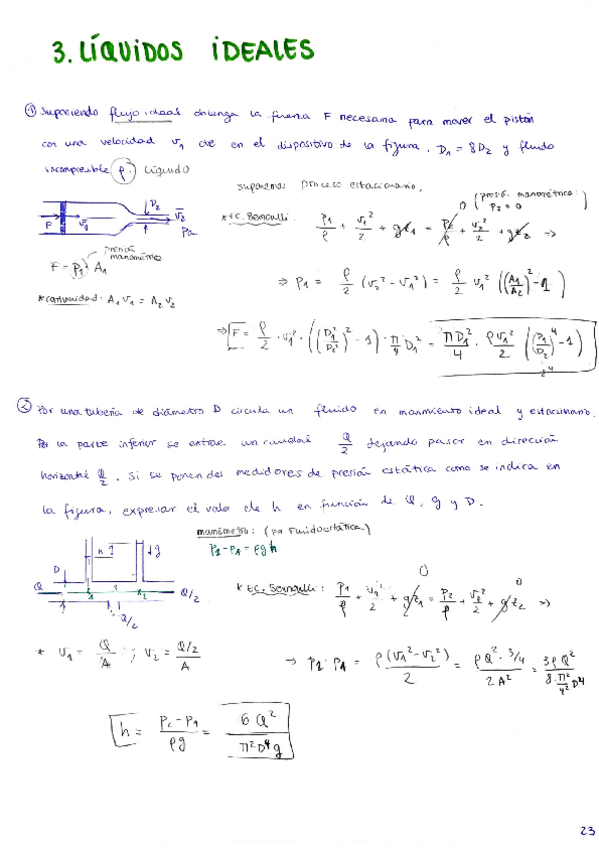 3. LÍQUIDOS IDEALES
① Suponiendo flujo ideal obtenga la fuerza F necesaria para mover el pistón
con una velocidad v₁ en el dispositivo de la figura. D₁ = 8D₂ y fluido
incompresible ρ. líquido
suponemos proceso estacionario.
(presió. manométrica: P₂ = 0)
* EC. Bernoulli: P₁/ρ + v₁²/2 + gz₁ = P₂/ρ + v₂²/2 + gz₂ ⇒
D₂
F v₁ v₂ Pa
presión manométrica
F = P₁ · A₁
* continuidad: A₁V₁ = A₂V₂
⇒ P₁ = ρ/2 (v₂² - v₁²) = ρ/2 v₁² ((A₁/A₂)² - 1)
⇒ F = ρ/2 · v₁² · ((D₁²/D₂²)² - 1) · π/4 D₁² = πD₁²/4 · ρv₁²/2 ((D₁/D₂)⁴ - 1)
② Por una tubería de diámetro D circula un fluido en movimiento ideal y estacionario.
Por la parte inferior se extrae un caudal Q/2 dejando pasar en dirección
horizontal Q/2. Si se ponen dos medidores de presión estática como se indica en
la figura, expresar el valor de h en función de Q, g y D.
manómetro: (por fluidoestática)
P₂ - P₁ = ρgh
h ↓g
D
Q 1 2 Q/2
Q/2
* EC. Bernoulli: P₁/ρ + v₁²/2 + gz₁ = P₂/ρ + v₂²/2 + gz₂ ⇒
* v₁ = Q/A ; v₂ = Q/2/A
⇒ P₂ - P₁ = ρ(v₁² - v₂²)/2 = ρQ² · 3/4 / 2A² = 3ρQ² / 8 · π²/4² D⁴
h = P₂ - P₁ / ρg = 6Q² / π²D⁴g
23